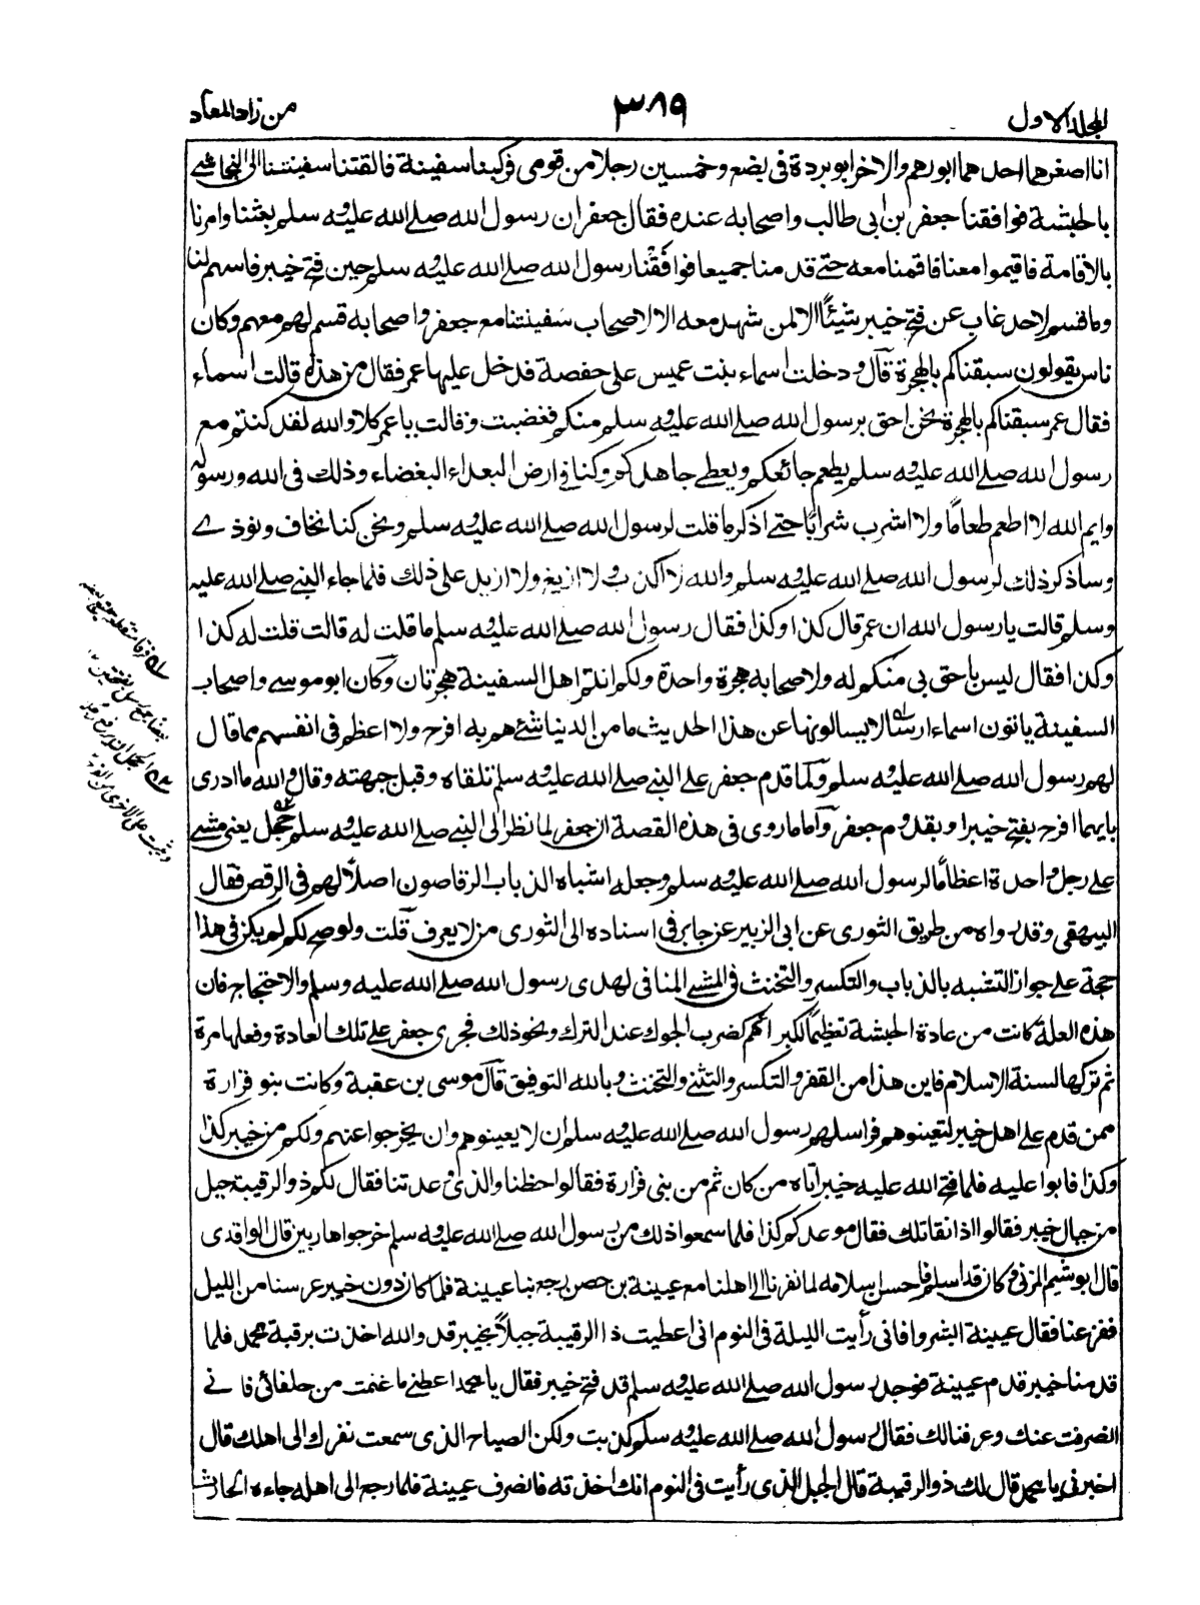 المجلد الاول
٣٨٩
من زاد المعاد
انا اصغرهما احدهما ابو رهم والاخر ابو بردة فى بضع وخمسين رجلا من قومى فركبنا سفينة فالقتنا سفينتنا الى النجاشے
بالحبشة فوافقنا جعفر بن ابى طالب واصحابه عنده فقال جعفر ان رسول الله صلے الله عليه وسلم بعثنا وامرنا
بالاقامة فاقيموا معنا فاقمنا معه حتے قدمنا جميعا فوافَقْنا رسول الله صلے الله عليه وسلم حين فتح خيبر فاسهم لنا
وما قسم لاحد غاب عن فتح خيبر شيئًا الا لمن شهد معه الا لاصحاب سفينتنا مع جعفر واصحابه قسم لهم معهم وكان
ناس يقولون سبقناكم بالهجرة قال ودخلت اسماء بنت عميس على حفصة فدخل عليها عمر فقال من هذه قالت اسماء
فقال عمر سبقناكم بالهجرة نحن احق برسول الله صلے الله عليه وسلم منكم فغضبت وقالت يا عمر كلا والله لقد كنتم مع
رسول الله صلے الله عليه وسلم يطعم جائعكم ويعطے جاهلكم وكنا فى ارض البعداء البغضاء وذلك فى الله ورسوله
وايم الله لا اطعم طعامًا ولا اشرب شرابًا حتے اذكر ما قلت لرسول الله صلے الله عليه وسلم ونحن كنا نخاف ونوذے
وساذكر ذلك لرسول الله صلے الله عليه وسلم والله لا اكذب ولا ازيغ ولا ازيد على ذلك فلما جاء النبے صلے الله عليه
وسلم قالت يا رسول الله ان عمر قال كذا وكذا فقال رسول الله صلے الله عليه وسلم ما قلت له قالت قلت له كذا
وكذا فقال ليس باحق بى منكم له ولاصحابه هجرة واحدة ولكم انتم اهل السفينة هجرتان وكان ابو موسے واصحاب
السفينة ياتون اسماء ارسالا يسالونها عن هذا الحديث ما من الدنيا شئے هم به افرح ولا اعظم فى انفسهم مما قال
لهم رسول الله صلے الله عليه وسلم ولما قدم جعفر على النبے صلے الله عليه وسلم تلقاه وقبل جبهته وقال والله ما ادرى
بايهما افرح بفتح خيبر او بقدوم جعفر واما ما روى فى هذه القصة ان جعفر لما نظر الى النبے صلے الله عليه وسلم حجل يعنى مشے
على رجل واحدة اعظامًا لرسول الله صلے الله عليه وسلم وجعله اشباه الذباب الرقاصون اصلًا لهم فى الرقص فقال
البيهقى وقد رواه من طريق الثورى عن ابى الزبير عن جابر فى اسناده الى الثورى من لا يعرف قلت ولو صح لكم لم يكن فى هذا
حجة على جواز التشبه بالذباب والتكسر والتخنث فى المشے المنافى لهدى رسول الله صلے الله عليه وسلم والاحتجاج فان
هذه العلة كانت من عادة الحبشة تعظيمًا لكبرائهم كضرب الجوك عند الترك ونحو ذلك فجرى جعفر على تلك العادة وفعلها مرة
ثم تركها لسنة الاسلام فاين هذا من القفز والتكسر والتثنے والتخنث وبالله التوفيق قال موسى بن عقبة وكانت بنو فزارة
ممن قدم على اهل خيبر لتعينوهم فراسلهم رسول الله صلے الله عليه وسلم ان لا يعينوهم وان يخرجوا عنهم ولكم من خيبر كذا
وكذا فابوا عليه فلما فتح الله عليه خيبر اتاه من كان ثم من بنى فزارة فقالوا حظنا والذى وعدتنا فقال لكم ذو الرقيبة جبل
من جبال خيبر فقالوا اذا نقاتلك فقال موعدكم كذا فلما سمعوا ذلك من رسول الله صلے الله عليه وسلم خرجوا هاربين قال الواقدى
قال ابو شييم المزنى وكان قد اسلم فاحسن اسلامه لما نفرنا الى اهلنا مع عيينة بن حصن رجع بنا عيينة فلما كان دون خيبر عرسنا من الليل
ففزعنا فقال عيينة ابشروا فانى رأيت الليلة فى النوم انى اعطيت ذا الرقيبة جبلًا بخيبر قد والله اخذت برقبة محمد فلما
قدمنا خيبر قدم عيينة فوجد رسول الله صلے الله عليه وسلم قد فتح خيبر فقال يا محمد اعطنے ما غنمت من حلفائى فانے
انصرفت عنك وعرفنا لك فقال رسول الله صلے الله عليه وسلم كذبت ولكن الصياح الذى سمعت نفرك الى اهلك قال
اخبرنى يا محمد قال لك ذو الرقيبة قال الجبل الذى رأيت فى النوم انك اخذته فانصرف عيينة فلما رجع الى اهله جاءه الحارث